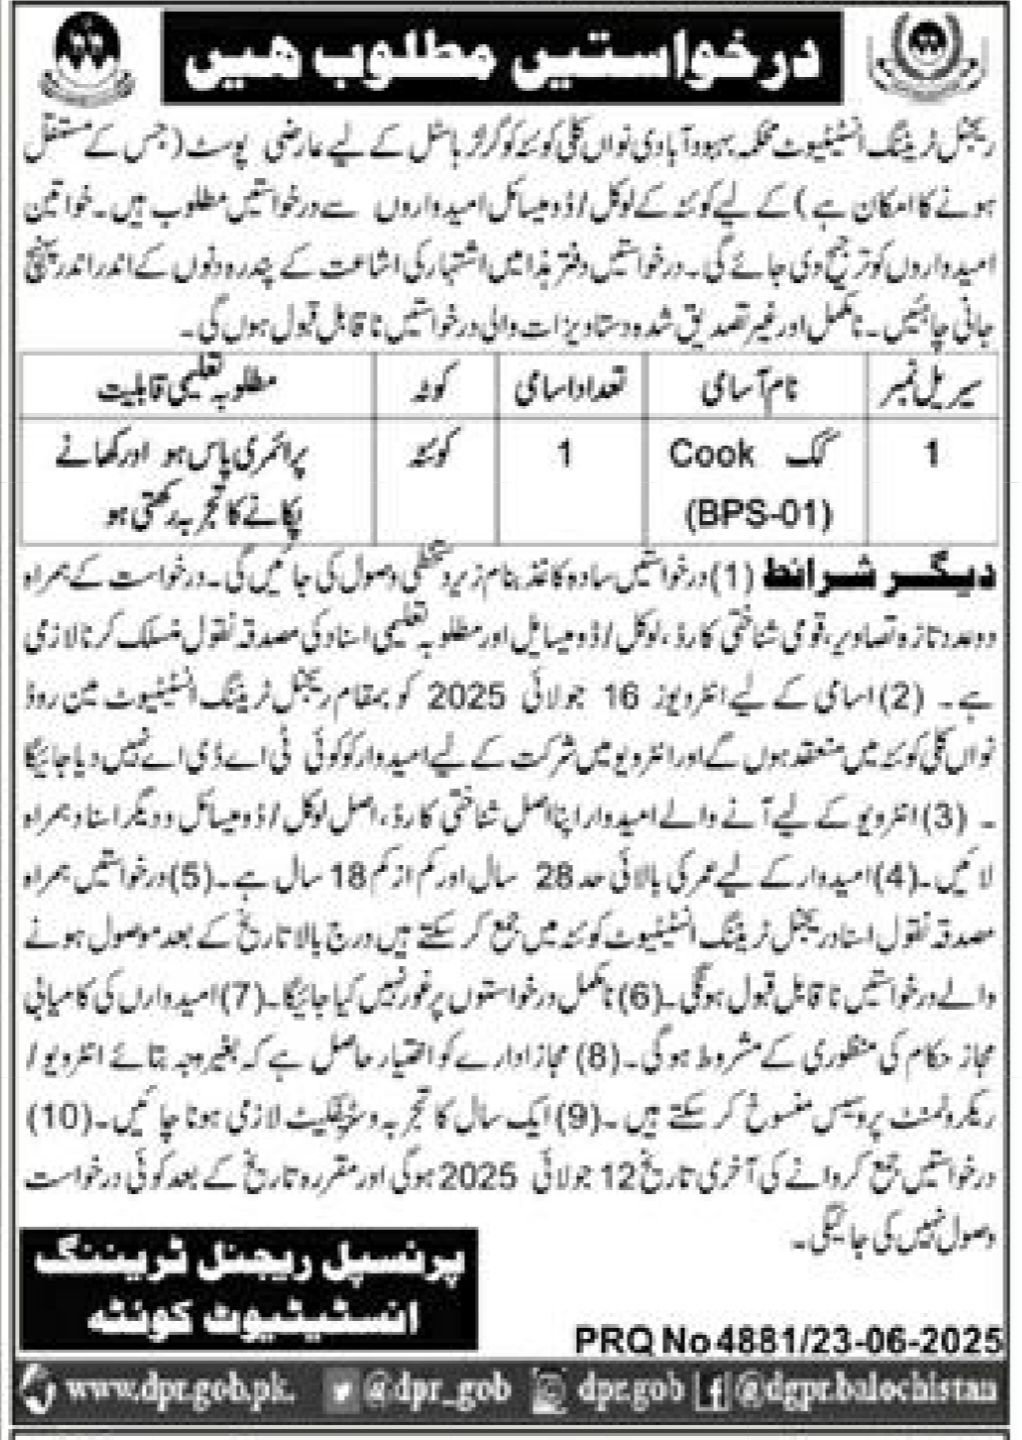 درخواستیں مطلوب ھیں
ریجنل ٹریننگ انسٹیٹیوٹ محکمہ بہبود آبادی نواں کلی کوئٹہ کو گرلز ہاسٹل کے لیے عارضی پوسٹ (جس کے مستقل
ہونے کا امکان ہے) کے لیے کوئٹہ کے لوکل/ڈومیسائل امیدواروں سے درخواستیں مطلوب ہیں۔ خواتین
امیدواروں کو ترجیح دی جائے گی۔ درخواستیں دفتر ہذا میں اشتہار کی اشاعت کے پندرہ دنوں کے اندر اندر پہنچ
جانی چاہئیں۔ نامکمل اور غیر تصدیق شدہ دستاویزات والی درخواستیں ناقابل قبول ہوں گی۔
سیریل نمبر نام آسامی تعداد اسامی کوٹہ مطلوبہ تعلیمی قابلیت
1 کک Cook 1 کوئٹہ پرائمری پاس ہو اور کھانے
(BPS-01) پکانے کا تجربہ رکھتی ہو
دیگر شرائط (1) درخواستیں سادہ کاغذ بنام زیر دستخطی وصول کی جائیں گی۔ درخواست کے ہمراہ
دو عدد تازہ تصاویر، قومی شناختی کارڈ، لوکل/ڈومیسایل اور مطلوبہ تعلیمی اسناد کی مصدقہ نقول منسلک کرنا لازمی
ہے۔ (2) اسامی کے لیے انٹرویوز 16 جولائی 2025 کو بمقام ریجنل ٹریننگ انسٹیٹیوٹ مین روڈ
نواں کلی کوئٹہ میں منعقد ہوں گے اور انٹرویو میں شرکت کے لیے امیدوار کو کوئی ٹی اے ڈی اے نہیں دیا جائیگا
۔ (3) انٹرویو کے لیے آنے والے امیدوار اپنا اصل شناختی کارڈ، اصل لوکل/ڈومیسائل و دیگر اسناد ہمراہ
لائیں۔ (4) امیدوار کے لیے عمر کی بالائی حد 28 سال اور کم از کم 18 سال ہے۔ (5) درخواستیں ہمراہ
مصدقہ نقول اسناد ریجنل ٹریننگ انسٹیٹیوٹ کوئٹہ میں جمع کر سکتے ہیں درج بالا تاریخ کے بعد موصول ہونے
والے درخواستیں ناقابل قبول ہونگی۔ (6) نامکمل درخواستوں پر غور نہیں کیا جائیگا۔ (7) امیدواراں کی کامیابی
مجاز حکام کی منظوری کے مشروط ہوگی۔ (8) مجاز ادارے کو اختیار حاصل ہے کہ بغیر وجہ بتائے انٹرویو/
ریکروئمنٹ پروسیس منسوخ کر سکتے ہیں۔ (9) ایک سال کا تجربہ و سرٹیفکیٹ لازمی ہونا چائیں۔ (10)
درخواستیں جمع کروانے کی آخری تاریخ 12 جولائی 2025 ہوگی اور مقررہ تاریخ کے بعد کوئی درخواست
وصول نہیں کی جائیگی۔
پرنسپل ریجنل ٹریننگ
انسٹیٹیوٹ کوئٹہ
PRQ No 4881/23-06-2025
www.dpr.gob.pk. @dpr_gob dpr.gob @dgpr.balochistan